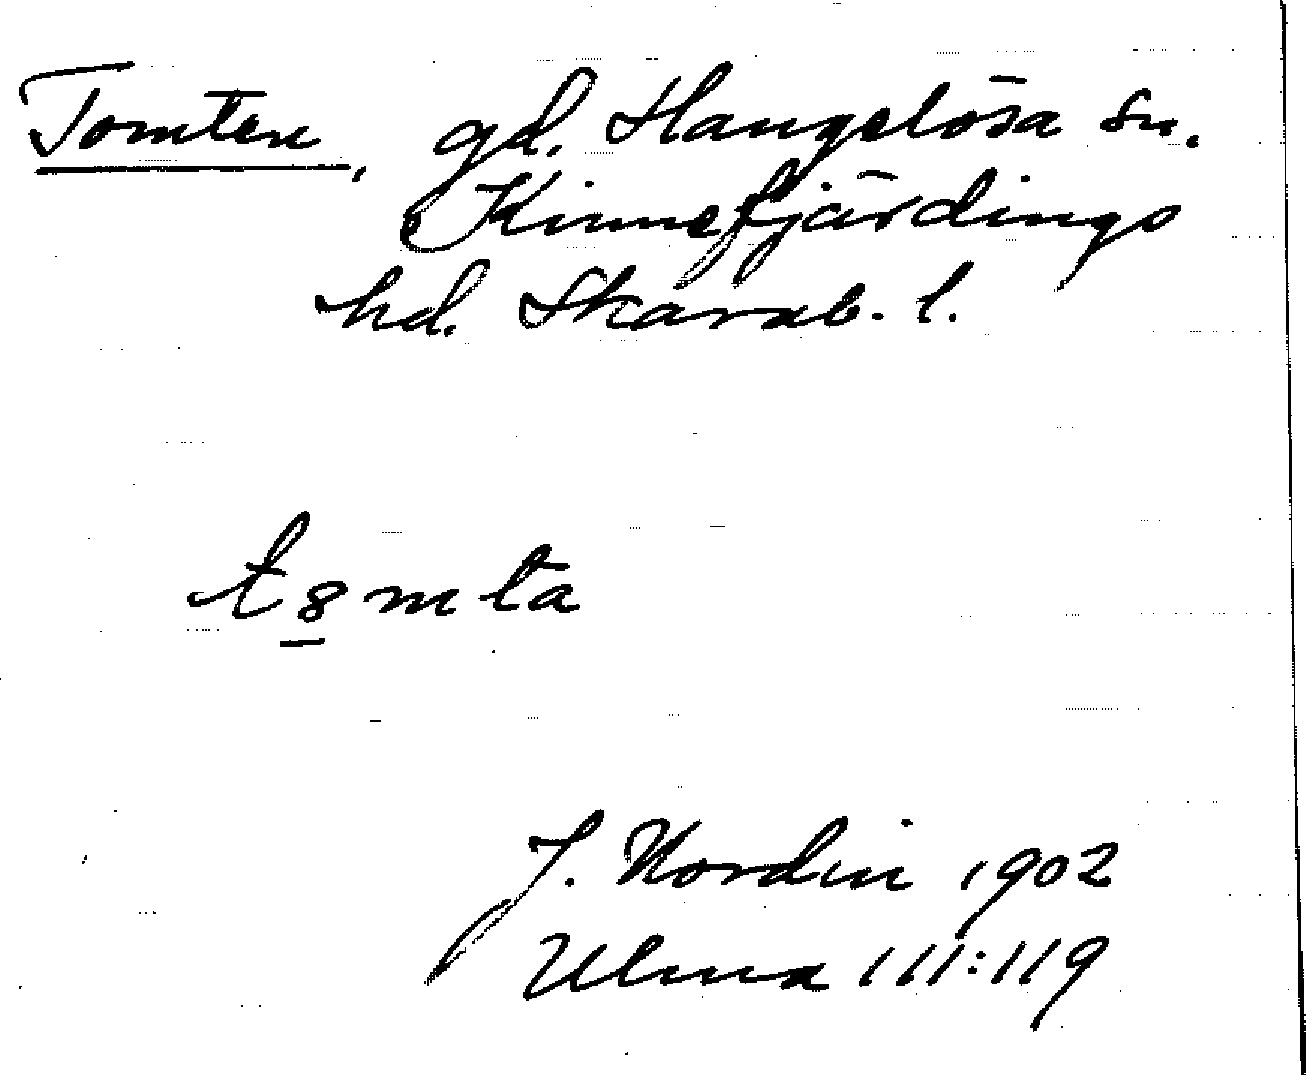 Tomten, gd. Hangelösa sn.
Kinnefjärdings
hd. Skarab. l.
t8mta
J. Nordin 1902
Ulma 111:119